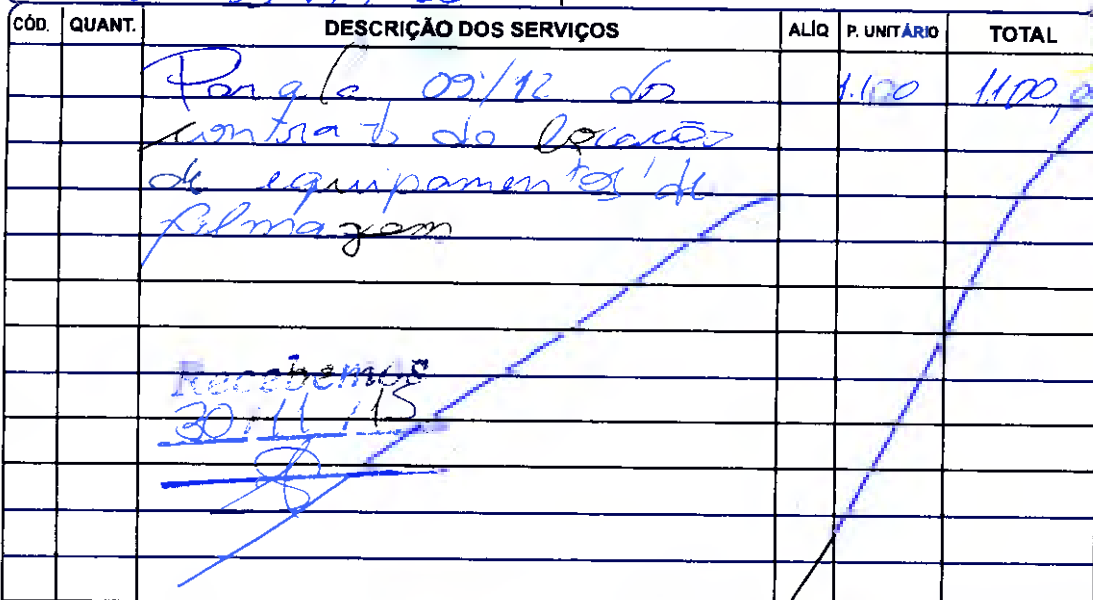 CÓD. QUANT. DESCRIÇÃO DOS SERVIÇOS ALÍQ P. UNITÁRIO TOTAL
Parcela 09/12 do 1.100 1.100,
contrato de locação
de equipamentos de
filmagem
Recebemos
30/11/15